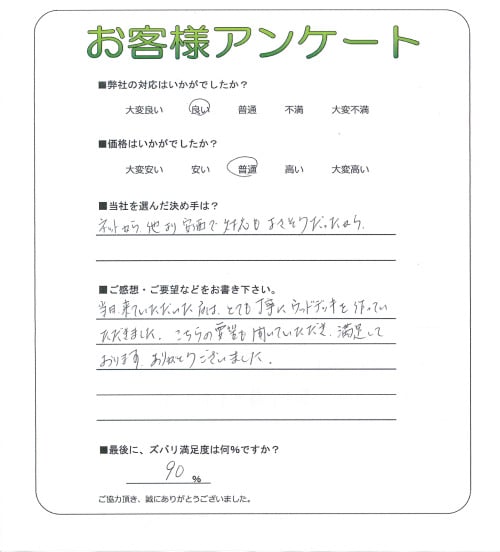 お客様アンケート
■弊社の対応はいかがでしたか?
大変良い 良い 普通 不満 大変不満
■価格はいかがでしたか?
大変安い 安い 普通 高い 大変高い
■当社を選んだ決め手は?
ネットから、他より安価で対応もよさそうだったから。
■ご感想・ご要望などをお書き下さい。
当日、来ていただいた方は、とても丁寧にウッドデッキを作ってい
ただきました。こちらの要望も聞いていただき、満足して
おります。ありがとうございました。
■最後に、ズバリ満足度は何%ですか?
90 %
ご協力頂き、誠にありがとうございました。